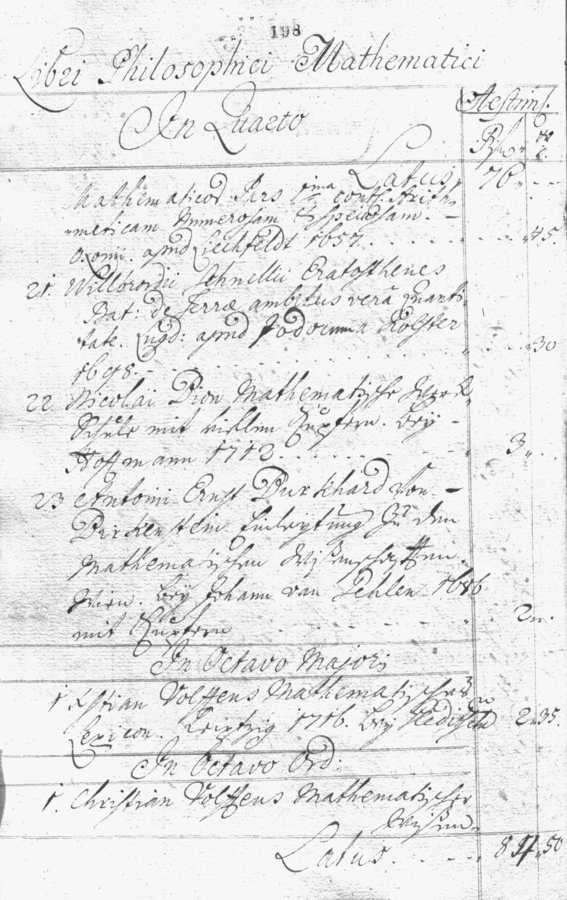 198
Libri Philosophici Mathematici
In Quarto
Aestim.
Latus 76
Mathematicor. Pars ima cont. Arith-
meticam Numerosam & speciosam.
Oxoni. apud Liechfeldt 1657. 45
21 Willbrordi Schnellii Eratosthenes
Bat: de Terrae ambitus vera quanti-
tate. Lugd: apud Jodocum Kolster
30
22 Nicolai Bion Mathematische Werk-
Schule mit vielen Kupfern. bey
Hoffmann 1712 3
23 Antoni Ernst Burkhard Von
Birckenstein Einleytung zu den
Mathematischen Wißenschafften
Wien. bey Johann van Gehlen 1686
mit Kupfern 2
In Octavo Majori
1 Xstian Volffens Mathematisches
Lexicon. Leipzig 1716. bey Gleditsch 2 35
In Octavo Ord:
1. Christian Volffens Mathematischer
Latus 84 50